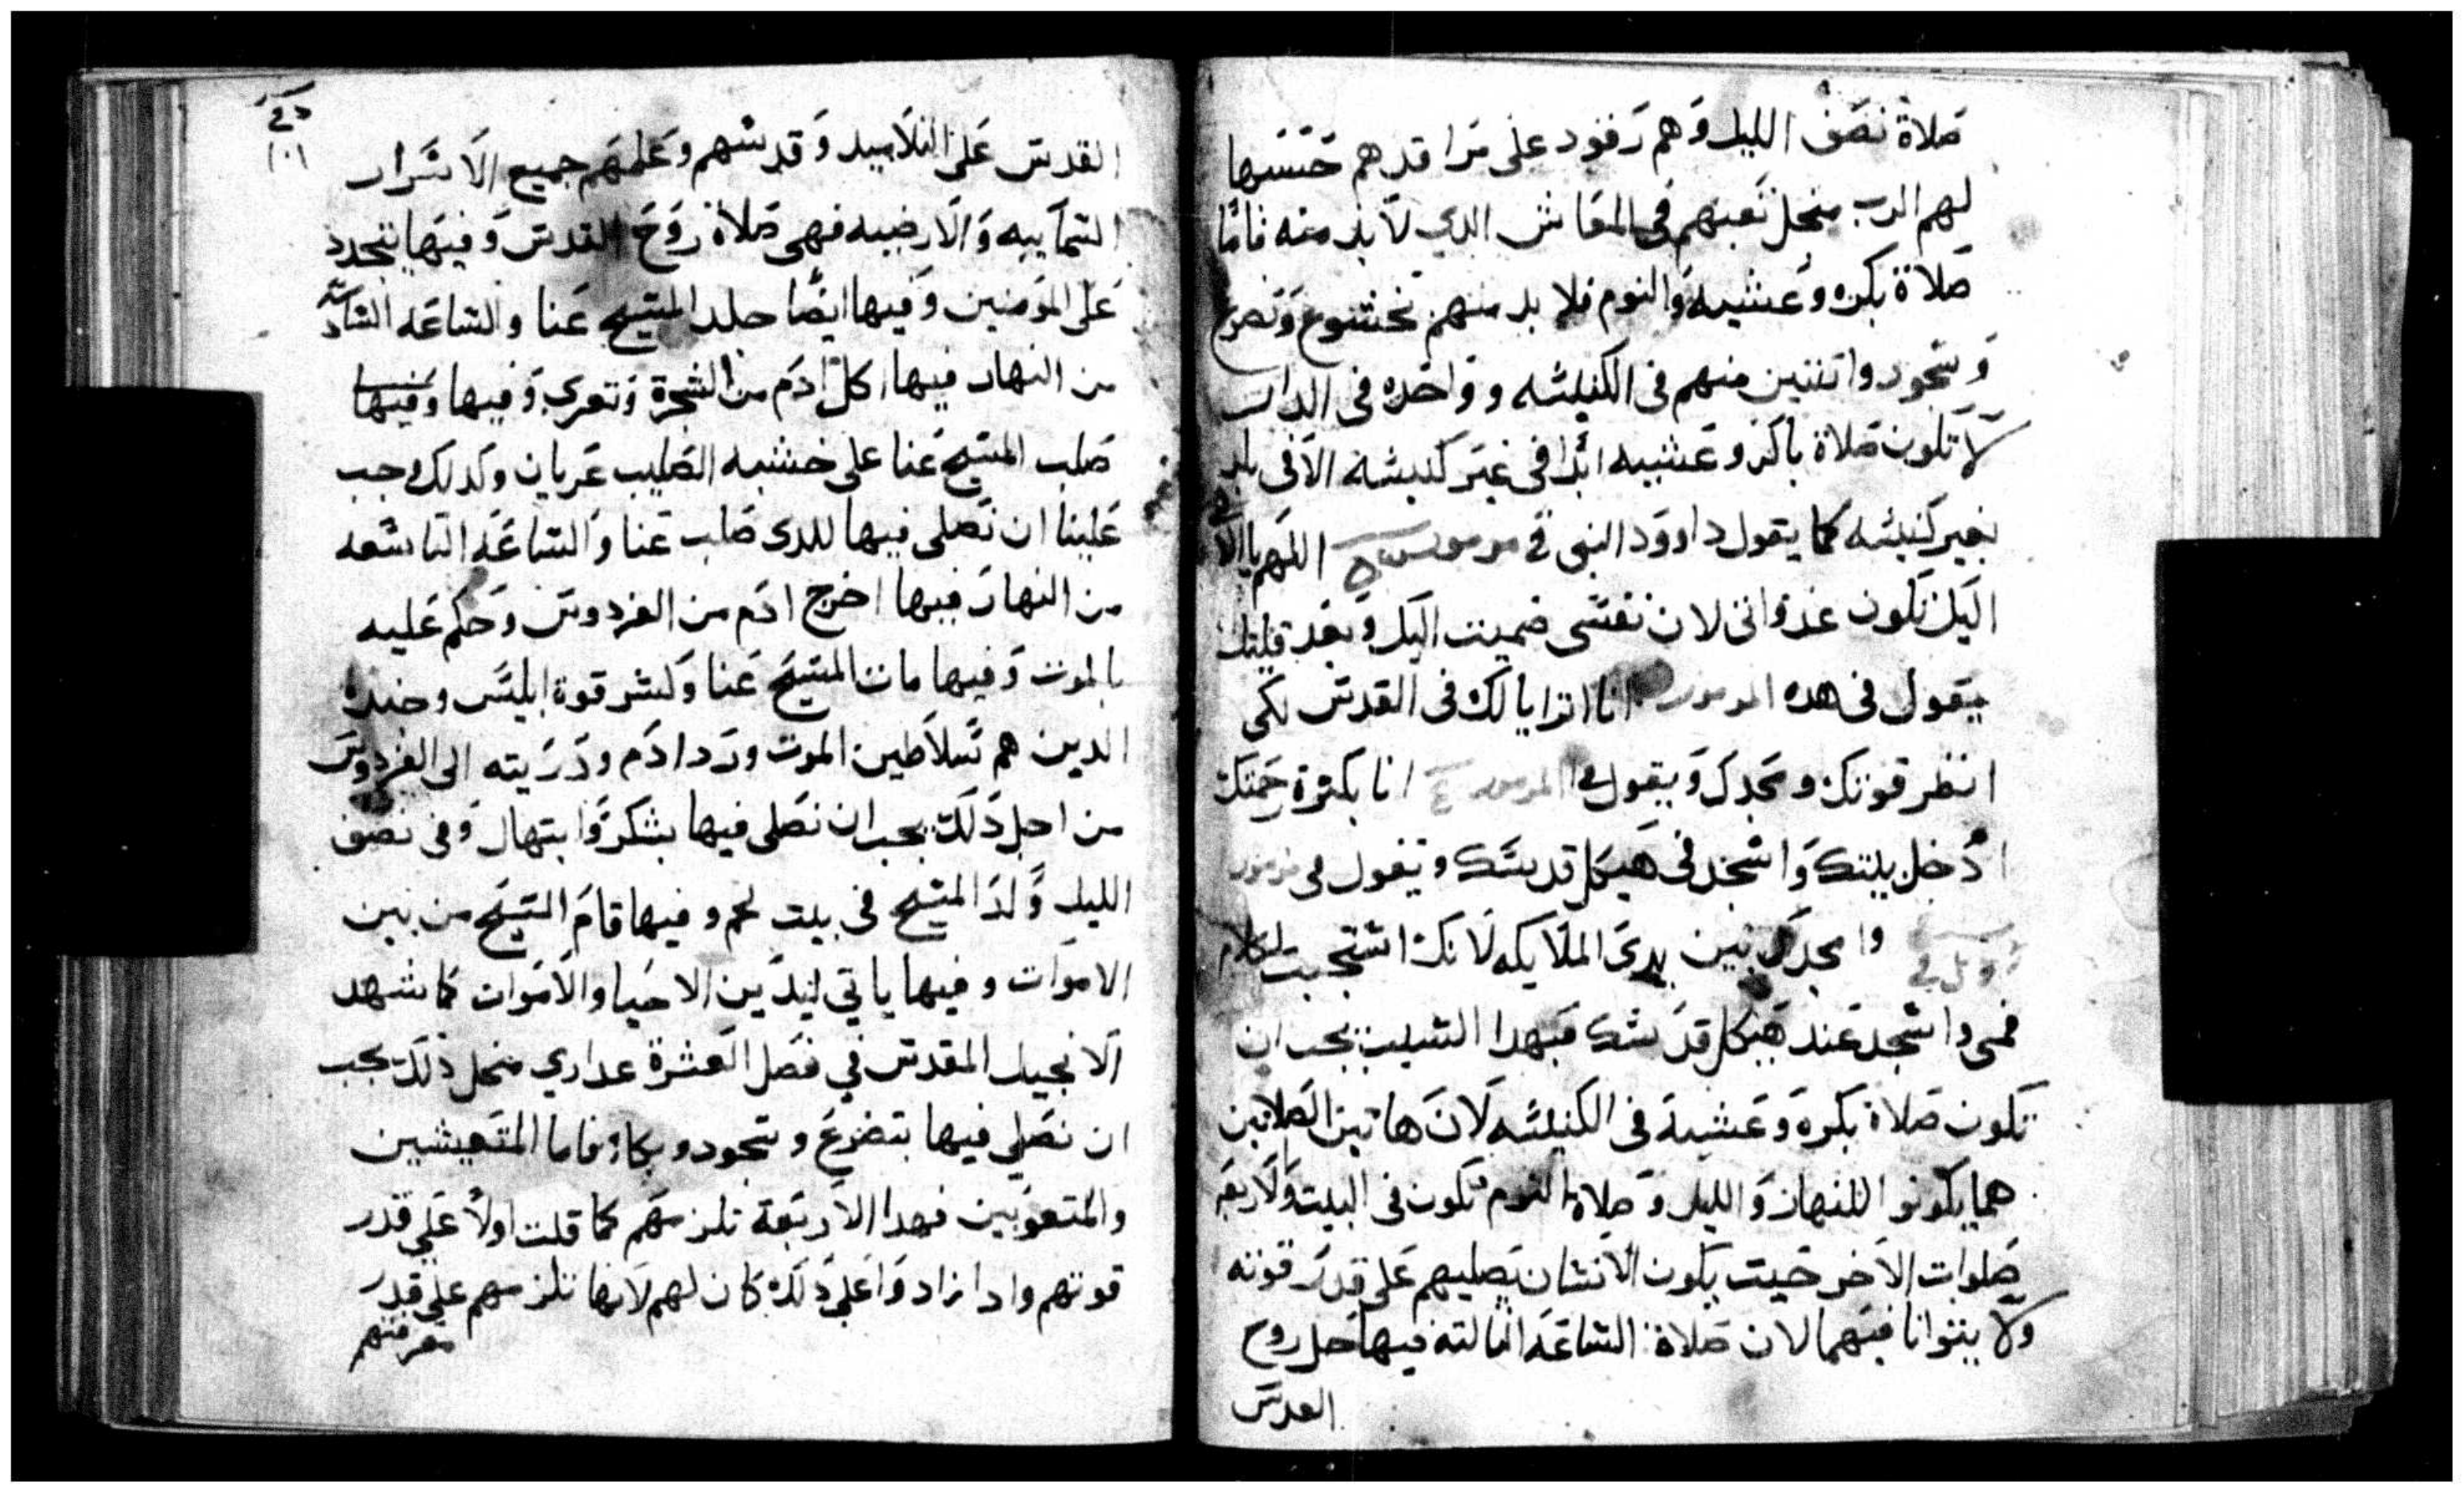 صلاة نصف الليل وهم رقود على مراقدهم حسبها
لهم الرب منجل تعبهم في المعاش الدي لا بد منه فاما
صلاة بكره وعشيه والنوم فلا بد منهم بخشوع وتضرع
وسجود واتنتين منهم في الكنيسه وواحده في الدار
لا تكون صلاة باكر وعشيه ابدا في غير كنيسة الا في بلد
بغير كنيسه كما يقول داوود النبي في مزمور اللهم يا الاهي
اليك تكون غدواتي لان نفسي ضميت اليك وبعد قليل
يقول في هده المزمور انا اترايا لك في القدس لكي
انظر قوتك ومجدك ويقول في المزمور انا بكثرة رحمتك
ادخل بيتك واسجد في هيكل قدسك ويقول في مزمور
وامجدك بين يدي الملايكه لانك استجبت لكلام
فمي واسجد عند هيكل قدسك فبهدا السبب يجب ان
تكون صلاة بكرة وعشية في الكنيسه لان هاتين الصلاتين
هما يكونوا للنهار والليل وصلاة النوم تكون في البيت والاربع
صلوات الاخر حيت يكون الانسان يصليهم على قدر قوته
ولا يتوانا فيهما لان صلاة الساعه التالته فيها حل روح
القدس
القدس على التلاميد وقدسهم وعلمهم جميع الاسرار
السماييه والارضيه فهي صلاة روح القدس وفيها يتجدد
على المومنين وفيها ايضا جلد المسيح عنا والساعه السادسه
من النهار فيها اكل ادم من الشجرة وتعري وفيها وفيها
صلب المسيح عنا على خشبه الصليب عريان وكدلك وجب
علينا ان نصلى فيها للدى صلب عنا والساعه التاسعه
من النهار فيها اخرج ادم من الفردوس وحكم عليه
بالموت وفيها مات المسيح عنا وكسر قوة ابليس وجنده
الدين هم سلاطين الموت ورد ادم ودريته الى الفردوس
من اجل دلك يجب ان نصلى فيها بشكر وابتهال وفي نصف
الليل ولد المسيح في بيت لحم وفيها قام المسيح من بين
الاموات وفيها ياتي ليدين الاحيا والاموات كما شهد
الانجيل المقدس في فصل العشرة عداري منجل دلك يجب
ان نصلي فيها بتضرع وسجود وبكاء فاما المتعيشين
والمتعوبين فهدا الاربعة تلزمهم كما قلت اولا على قدر
قوتهم وادا زادوا على دلك كان لهم لانها تلزمهم على قدر
معرفتهم